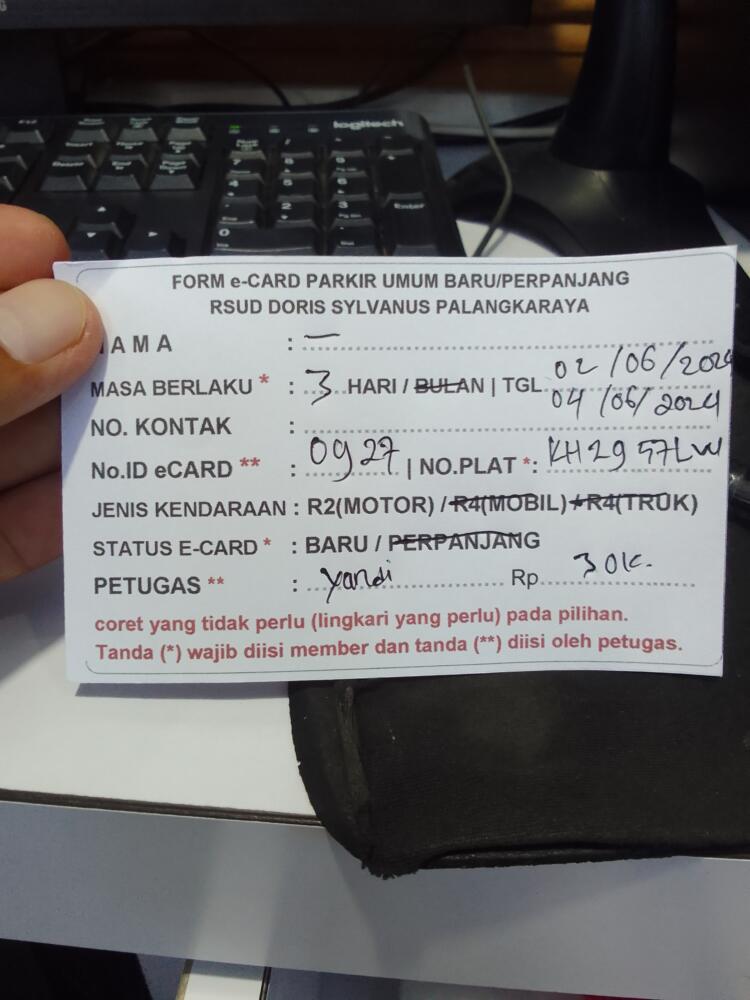 logitech
FORM e-CARD PARKIR UMUM BARU/PERPANJANG
RSUD DORIS SYLVANUS PALANGKARAYA
AMA : —
MASA BERLAKU * : 3 HARI / BULAN | TGL 02/06/2024
04/06/2024
NO. KONTAK :
No.ID eCARD ** : 0927 | NO.PLAT *: KH 2957LW
JENIS KENDARAAN : R2(MOTOR) / R4(MOBIL) R4(TRUK)
STATUS E-CARD * : BARU / PERPANJANG
PETUGAS ** : yandi Rp 30k.
coret yang tidak perlu (lingkari yang perlu) pada pilihan.
Tanda (*) wajib diisi member dan tanda (**) diisi oleh petugas.